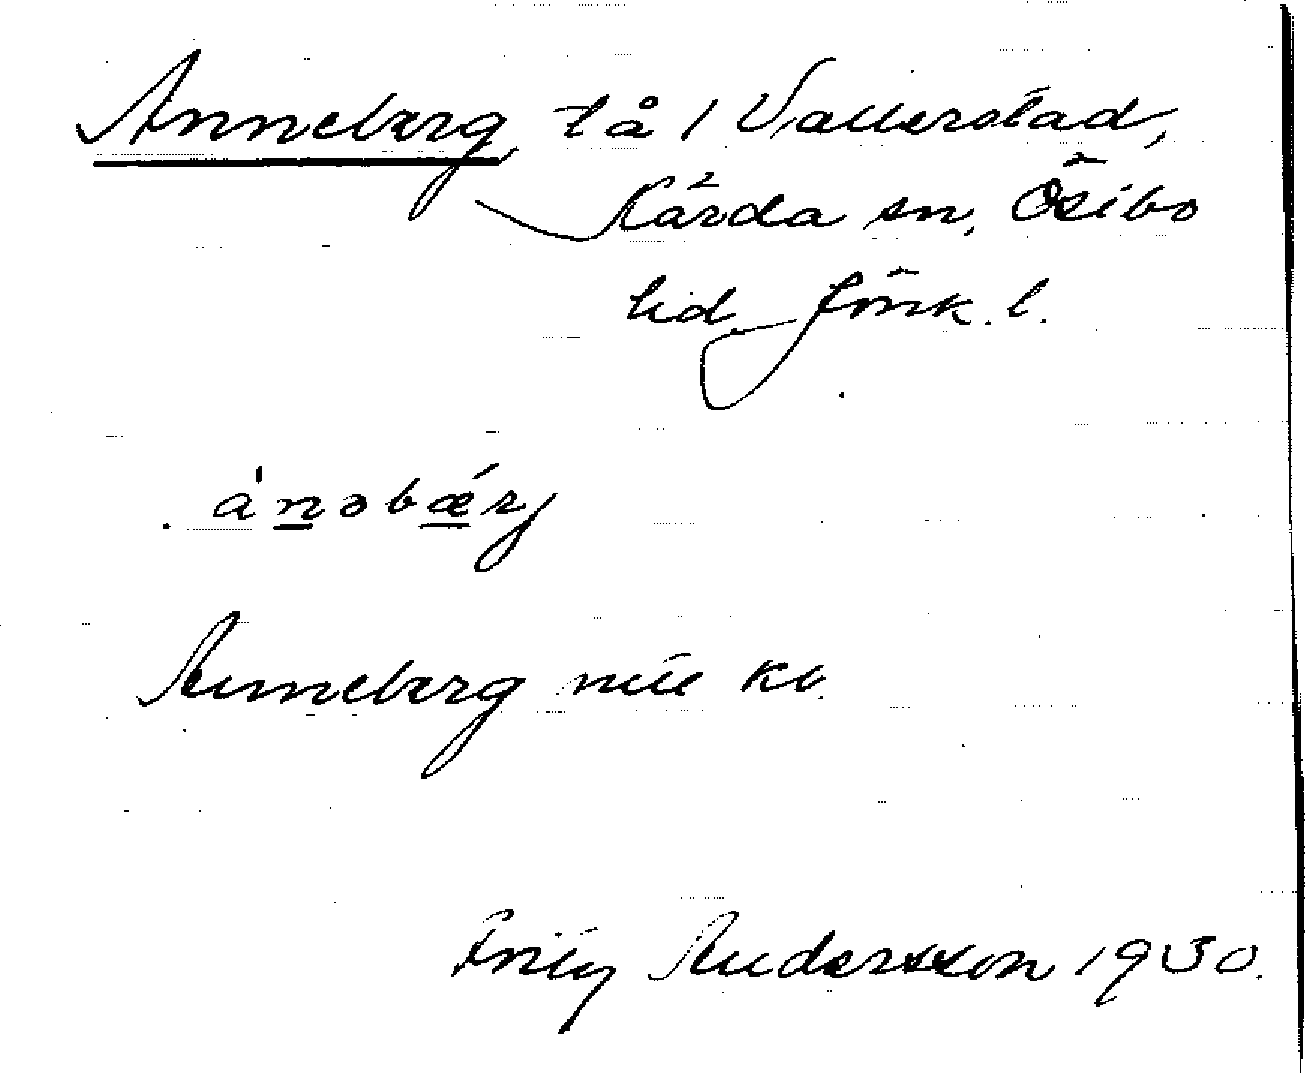 Anneberg, tå 1 Vallerstad,
Kärda sn, Östbo
hd Jönk. l.
ánəbǽrj
Anneberg nüe kv.
Fritz Andersson 1930.